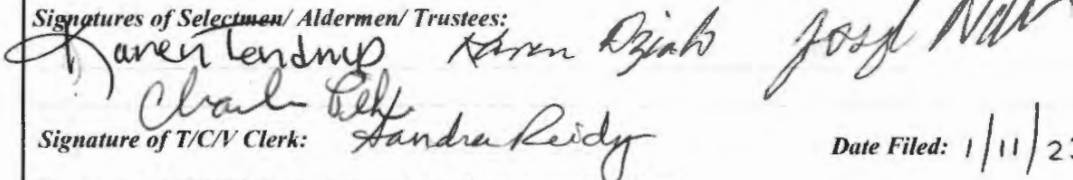 Signatures of Selectmen/ Aldermen/ Trustees:
Karen Tendrup Karen Dziado Joseph
Charles
Signature of T/C/V Clerk: Sandra Reidy Date Filed: 1/11/23